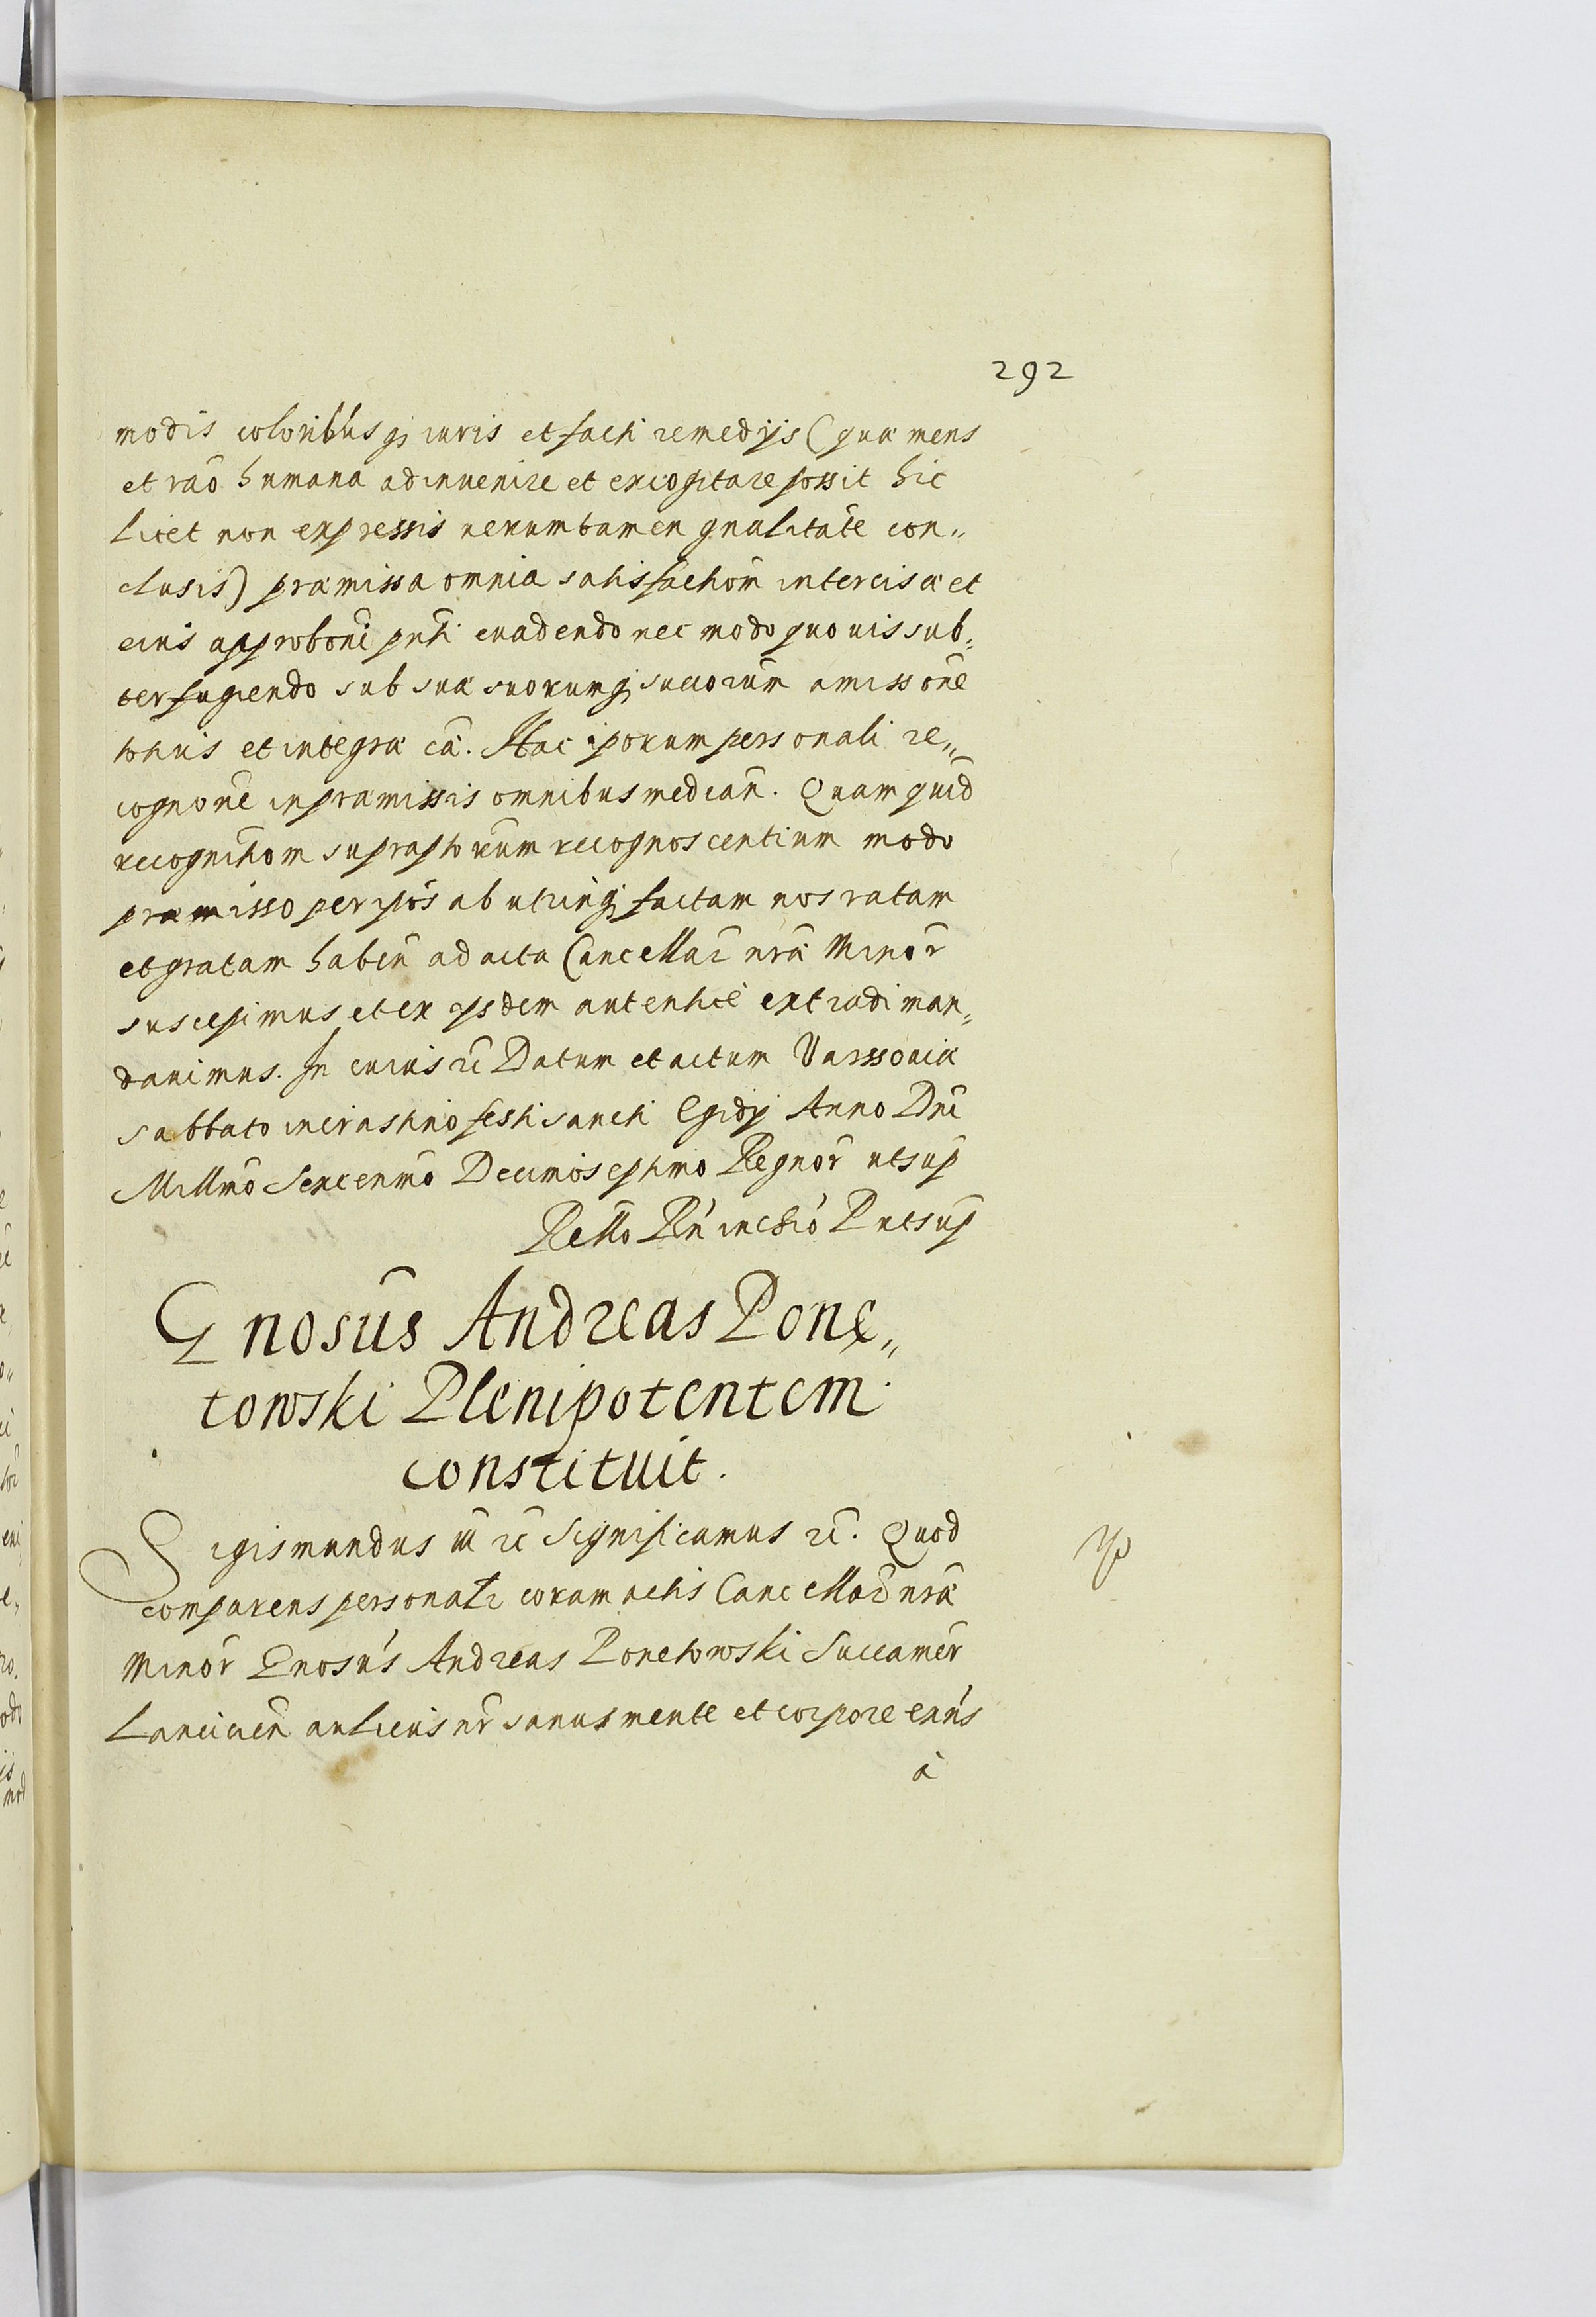 292
modis coloribus q; iuris et facti remedijs (quæ mens
et rão humana adinuenire et excogitare possit hic
licet non expressis uerumtamen gnalitate con„
clusis) præmissa omnia satisfactiom intercisæ et
eius approboni pnti euadendo nec modo quouis sub„
terfugiendo sub suæ suorumq; succorum amissone
totius et integræ cæ. Hac iporum personali re„
cognone in præmissis omnibus median. Quam quid
recognitiom supraptorum recognoscentium modo
præmisso per ipos ab utrinq; factam nos ratam
et gratam haben ad acta Cancellar nræ Minor
suscepimus et ex ijsdem autentice extradi man„
dauimus. In cuius rc Datum et actum Varssouiæ
sabbato in crastino festi sancti Egidij Anno Dni
Millmo Sexcenmo Decimoseptimo Regnor ut sup
Rello Rn
ut sup
Gnosus Andreas Ponę„
towski Plenipotentem
constituit.
Sigismundus III rc Significamus rc. Quod
comparens personalr coram actis Cancellar nræ
Minor Gnosus Andreas Ponętowski Succamer
Lancicien aulicus nr sanus mente et corpore exns
à